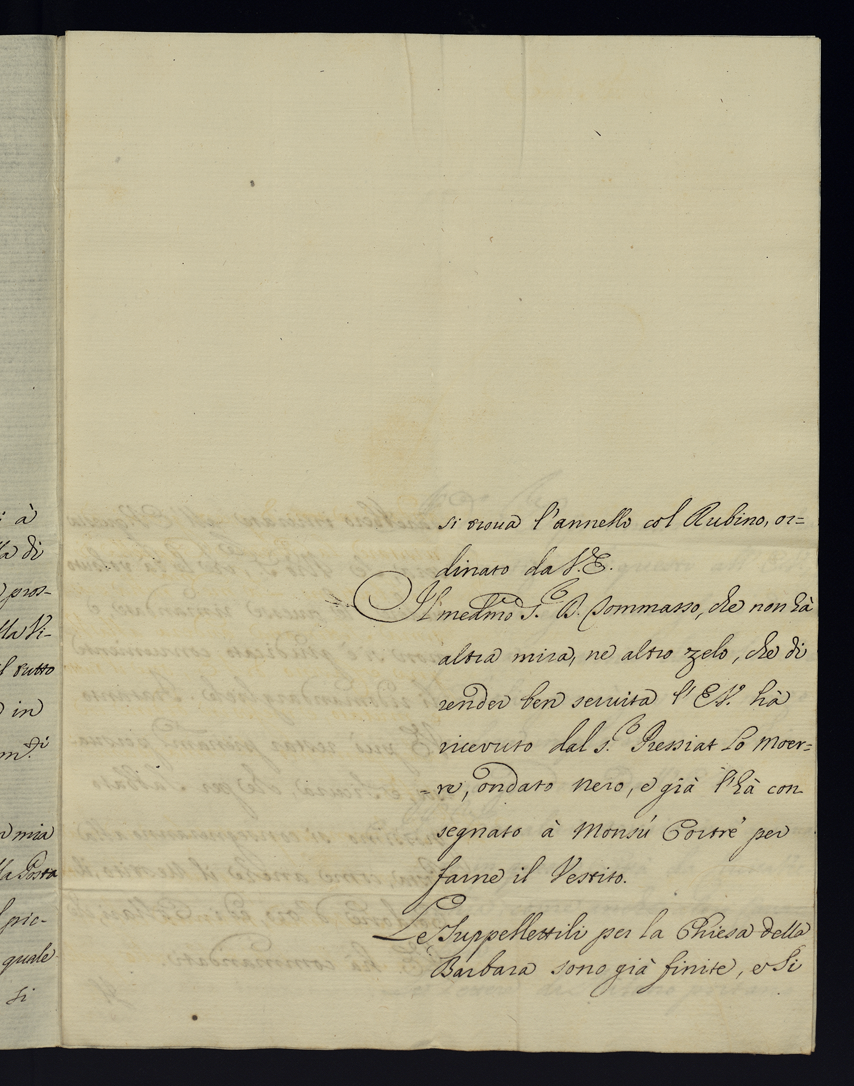 i à
lla di
pros-
lla Vi-
il tutto
in
m.di
mia
lla Posta
pic-
quale
si
si trova l'annello col Rubino, or=
dinato da V.E.
Il medmo S.r D. Tommasso, che non hà
altra mira, nè altro zelo, che di
render ben servita l'E.V. hà
ricevuto dal S.r Pressiat Lo Moer=
=re, ondato nero, e già l'hà con-
segnato à Monsú Cortré per
farne il Vestito.
Le Suppellettili per la Chiesa della
Barbara sono già finite, e Si